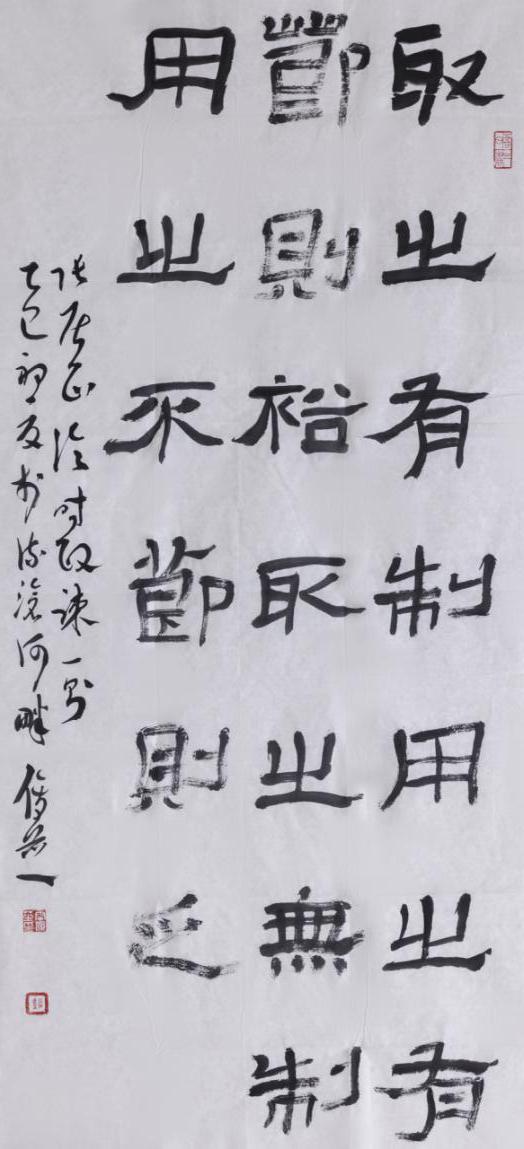 取之有制用之有
節則裕取之無制
用之不節則乏
張居正論時政疏一
乙巳初夏於河畔